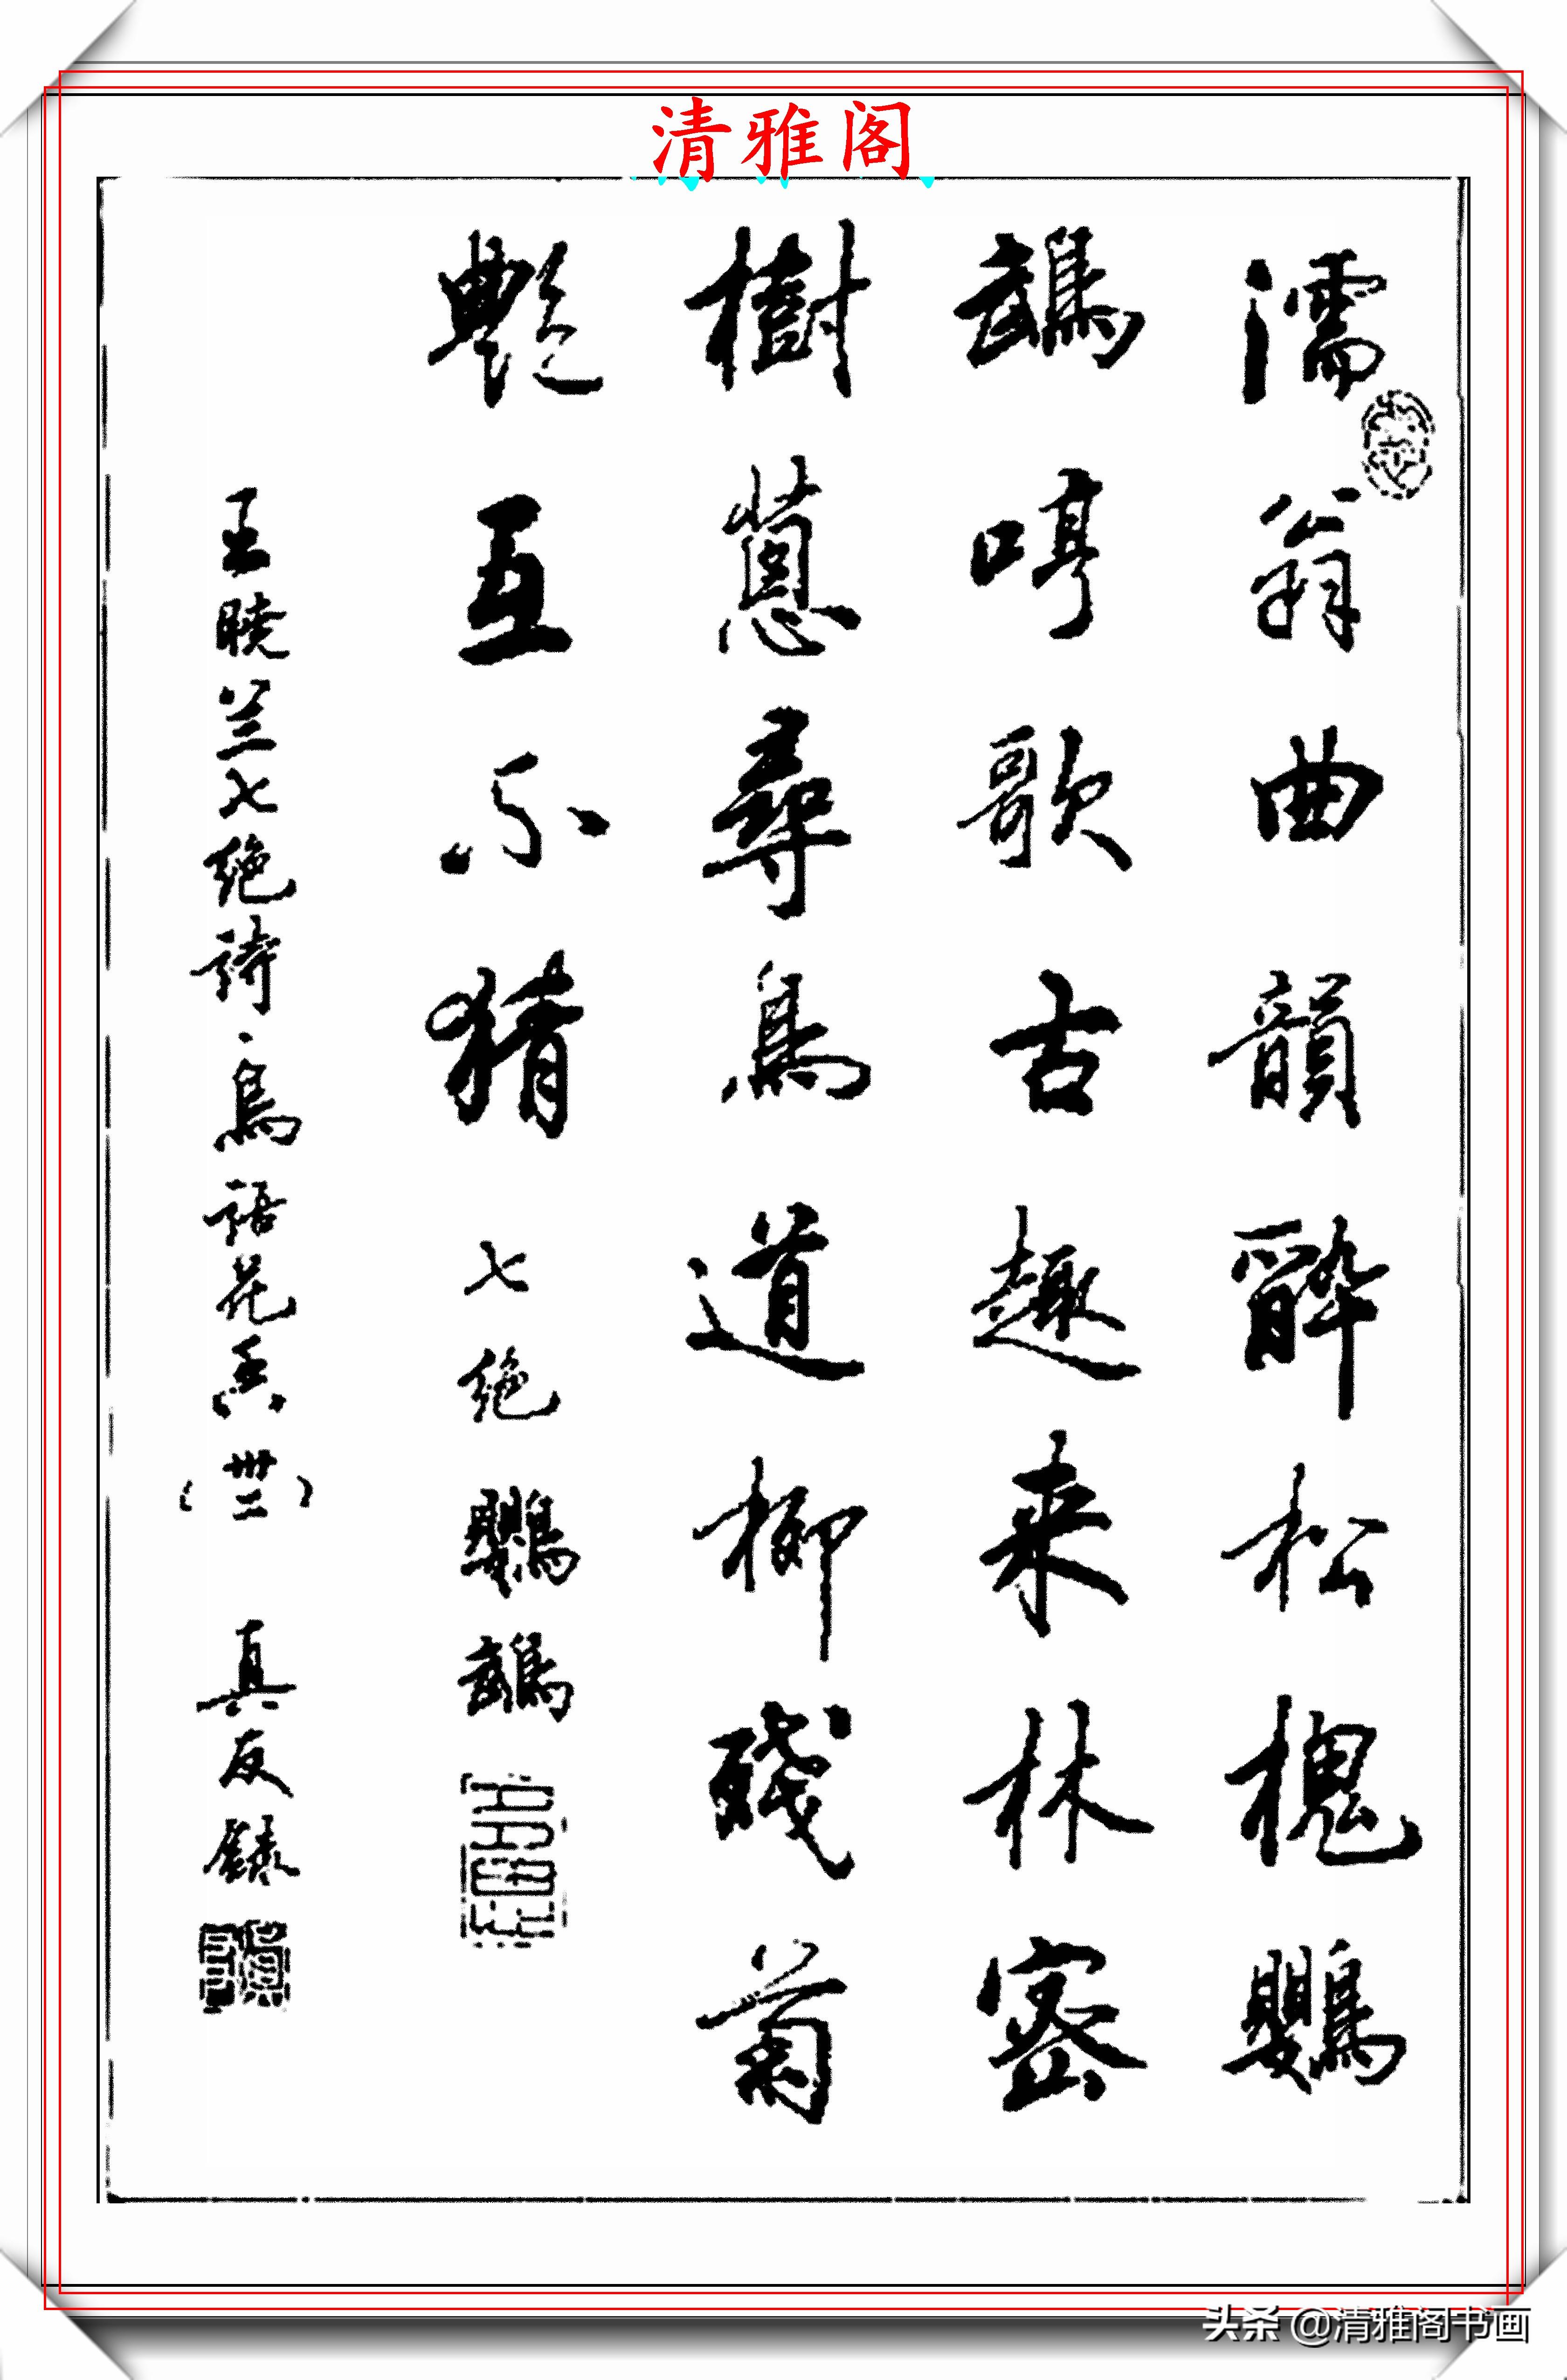 清雅阁
濡翁曲韻醉松槐鸚
鵡哼歌古趣来林密
樹蔥尋鳥道柳殘菊
艷互不猜
七绝鸚鵡
王曉兰七绝诗、鳥语花香(卅二) 真友錄
头条 @清雅阁书画